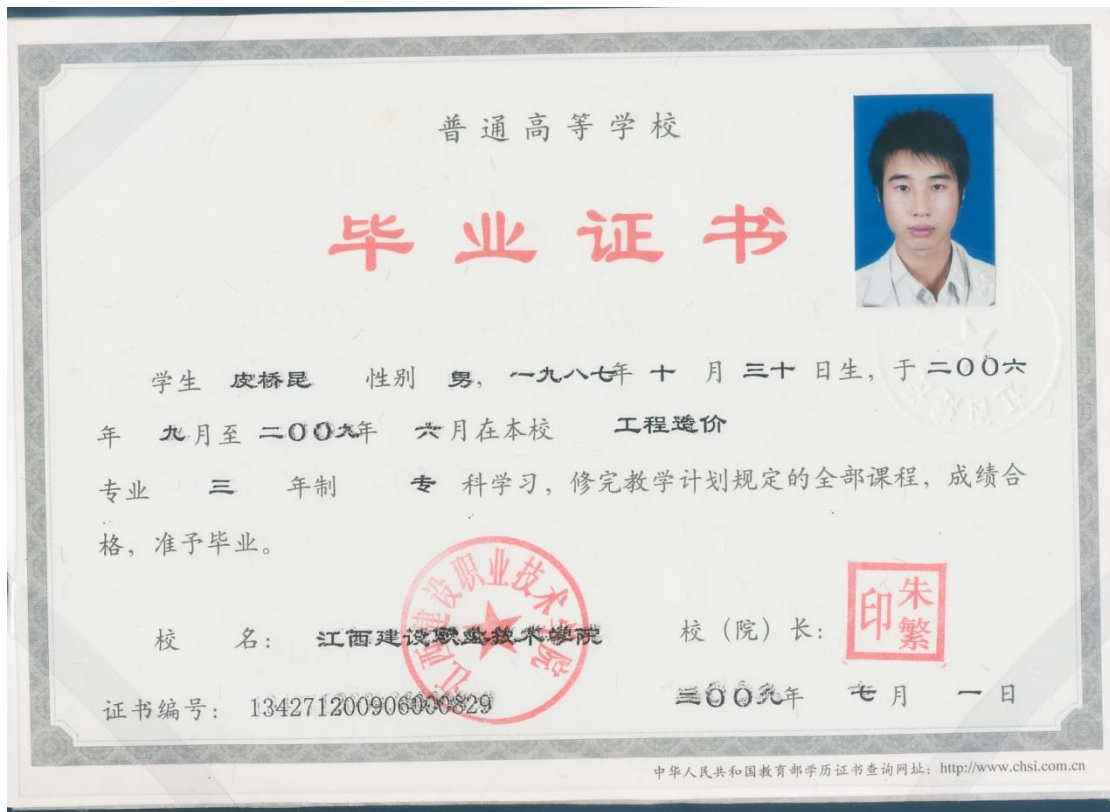 普通高等学校
毕业证书
学生 皮桥昆 性别 男，一九八七年 十 月 三十 日生，于 二〇〇六
年 九月至 二〇〇九年 六月在本校 工程造价
专业 三 年制 专 科学习，修完教学计划规定的全部课程，成绩合
格，准予毕业。
江西建设职业技术学院
朱繁
印
校 名： 江西建设职业技术学院 校（院）长：
证书编号： 134271200906000829 二〇〇九年 七月 一日
中华人民共和国教育部学历证书查询网址：http://www.chsi.com.cn